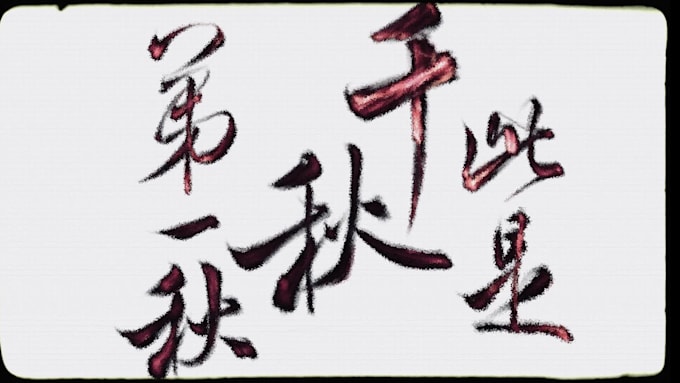 此是
千秋
第一秋